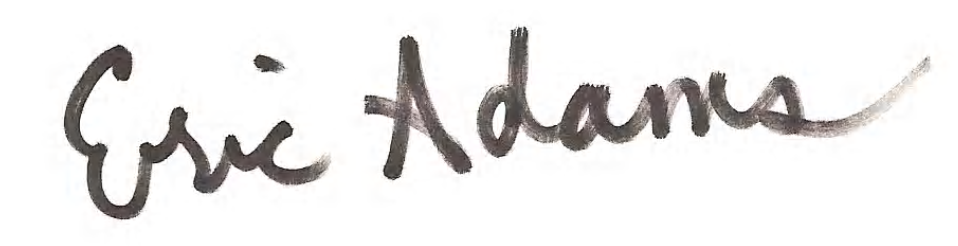 Eric Adams